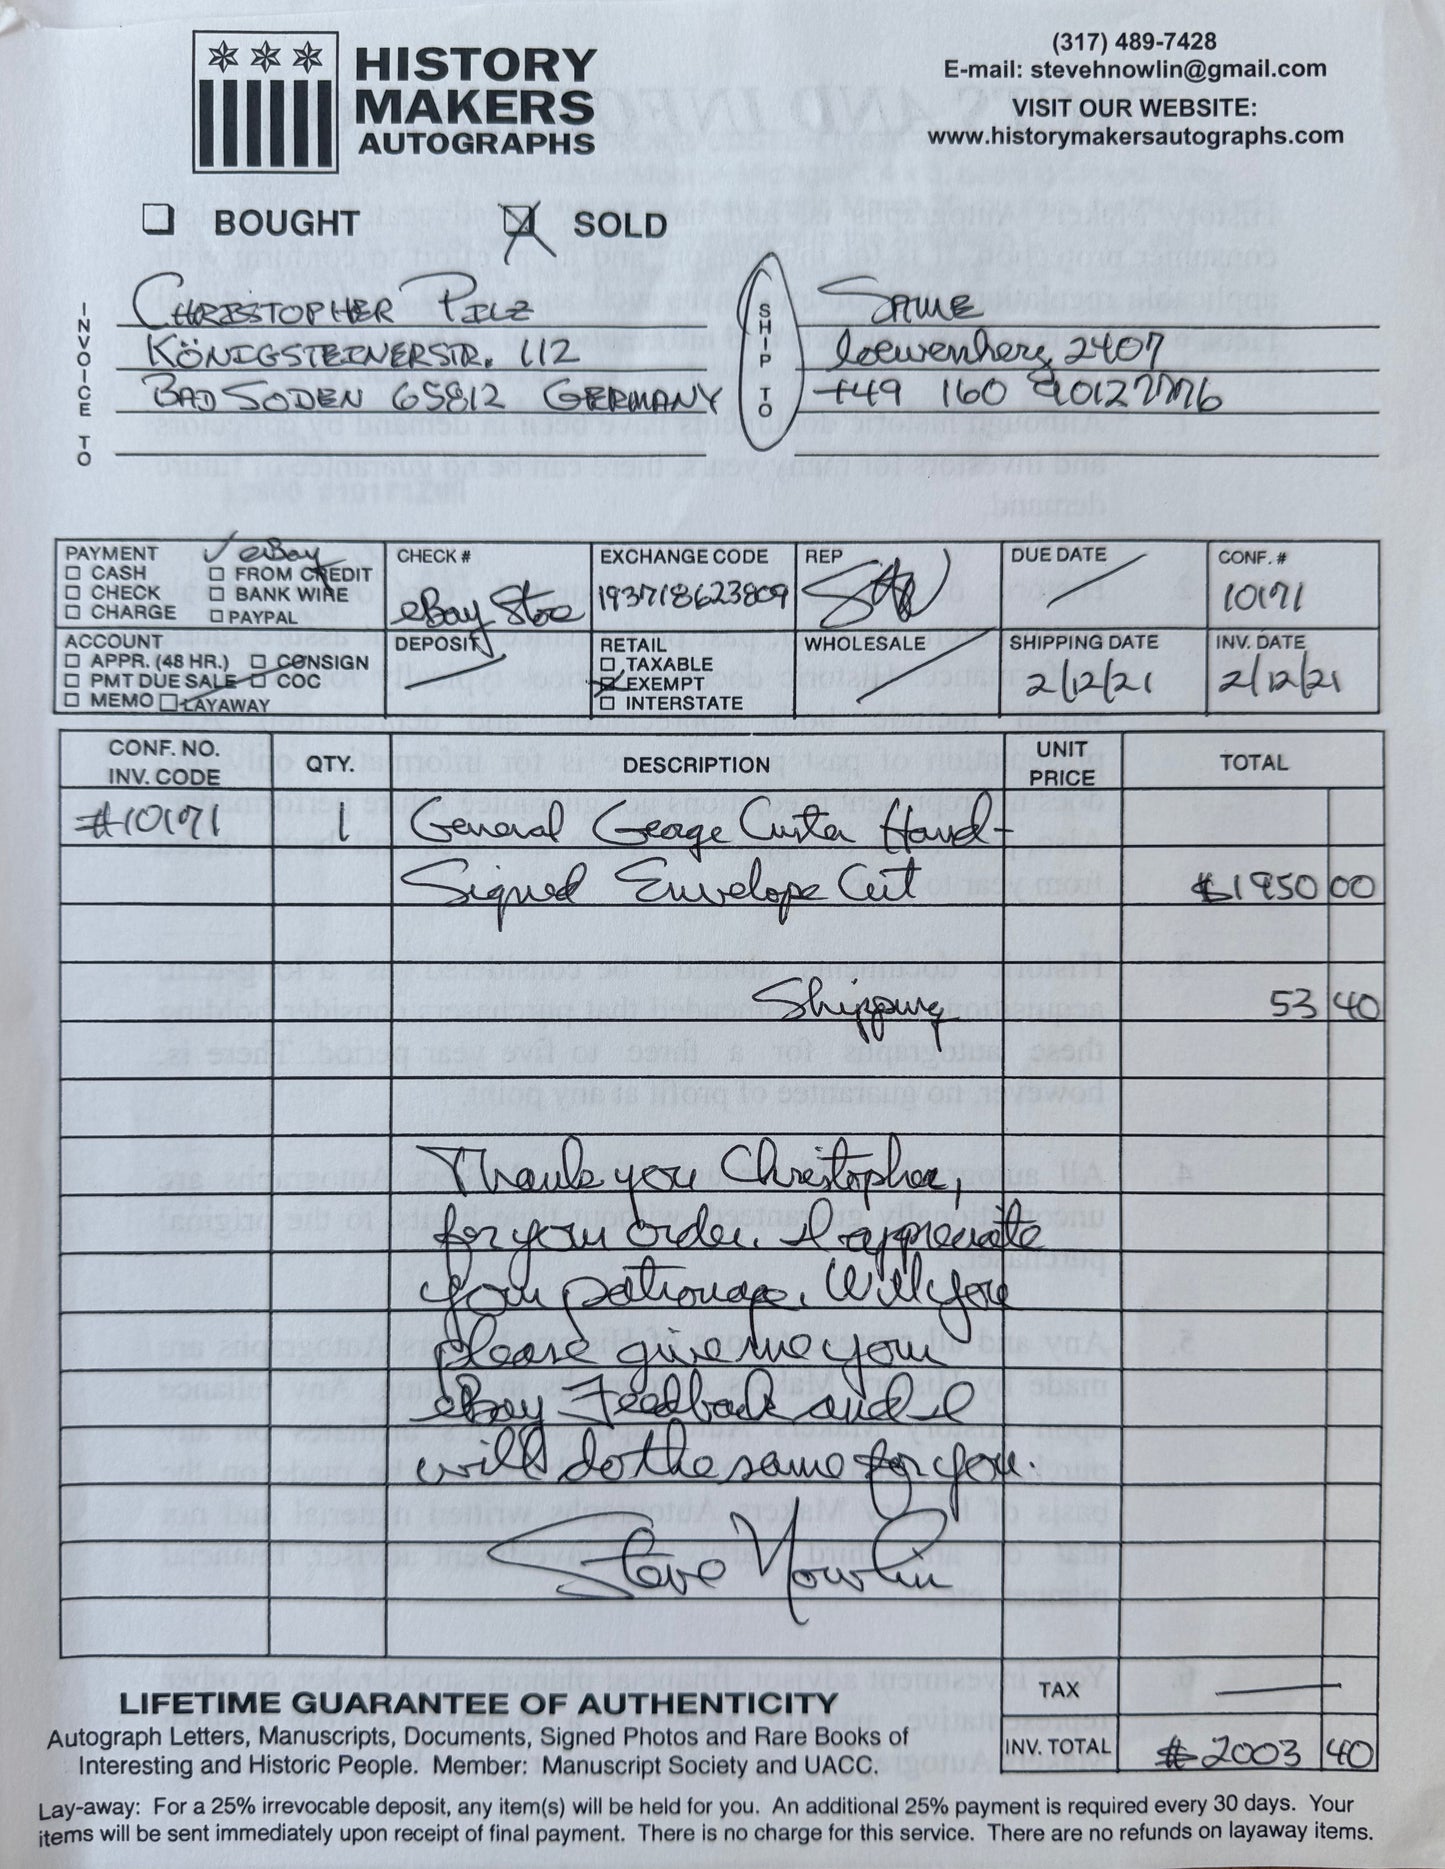 HISTORY
MAKERS
AUTOGRAPHS
(317) 489-7428
E-mail: stevehnowlin@gmail.com
VISIT OUR WEBSITE:
www.historymakersautographs.com
BOUGHT
SOLD
INVOICE TO
CHRISTOPHER PILZ
KÖNIGSTEINERSTR. 112
BAD SODEN 65812 GERMANY
SHIP TO
SAME
loewenherz 2407
+49 160 90127776
PAYMENT eBay
CASH FROM CREDIT
CHECK BANK WIRE
CHARGE PAYPAL
CHECK #
eBay Store
EXCHANGE CODE
193718623809
REP
DUE DATE
CONF. #
10171
ACCOUNT
APPR. (48 HR.) CONSIGN
PMT DUE SALE COC
MEMO LAYAWAY
DEPOSIT
RETAIL
TAXABLE
EXEMPT
INTERSTATE
WHOLESALE
SHIPPING DATE
2/12/21
INV. DATE
2/12/21
CONF. NO.
INV. CODE
QTY.
DESCRIPTION
UNIT
PRICE
TOTAL
#10171 1 General George Custer Hand-
Signed Envelope Cut $1950 00
Shipping 53 40
Thank you Christopher,
for your order. I appreciate
your patronage. Will you
please give me your
eBay Feedback and I
will do the same for you.
Steve Nowlin
TAX
INV. TOTAL $2003 40
LIFETIME GUARANTEE OF AUTHENTICITY
Autograph Letters, Manuscripts, Documents, Signed Photos and Rare Books of
Interesting and Historic People. Member: Manuscript Society and UACC.
Lay-away: For a 25% irrevocable deposit, any item(s) will be held for you. An additional 25% payment is required every 30 days. Your
items will be sent immediately upon receipt of final payment. There is no charge for this service. There are no refunds on layaway items.